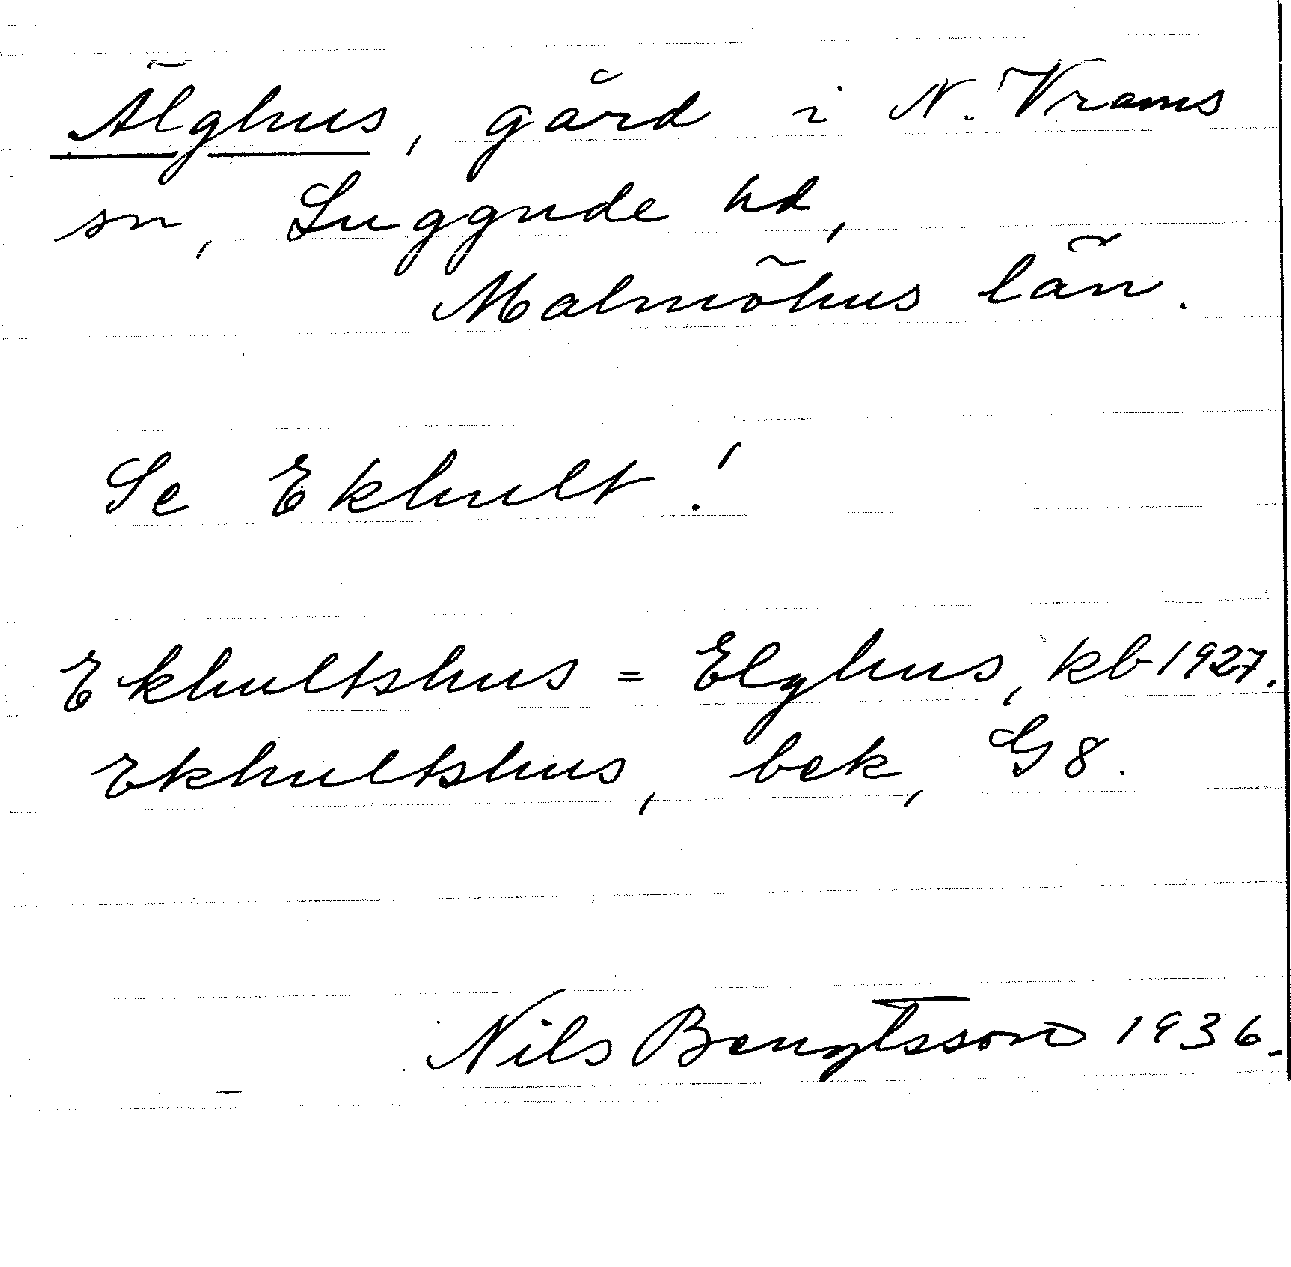 Älghus, gård i N. Vrams
sn, Luggude hd,
Malmöhus län.
Se Ekhult!
Ekhultshus = Elghus, kb 1927.
Ekhultshus, bek, G 8.
Nils Bengtsson 1936.